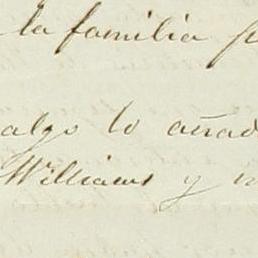 la familia
algo lo añad
Williams y